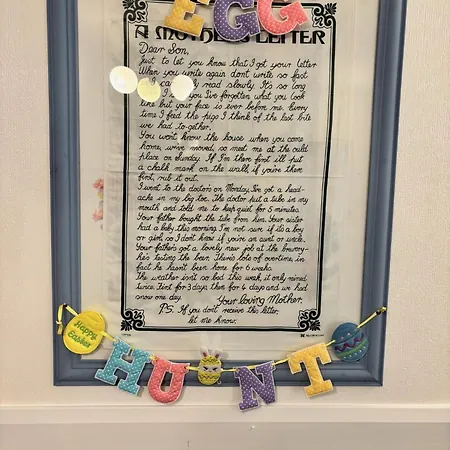 EGG
A MOTHER'S LETTER
Dear Son,
Just to let you know that I got your letter
When you write again don't write so fast
I can only read slowly. It's so long
I you I've forgotten what you look
like but your face is ever before me. Every
time I feed the pigs I think of the last bite
we had to-gether.
You won't know the house when you come
home, we've moved, so meet me at the ould
place on Sunday. If I'm there first ill put
a chalk mark on the wall, if you're there
first, rub it out.
I went to the doctors on Monday, I've got a head-
ache in my big toe. The doctor put a tube in my
mouth and told me to keep quiet for 5 minutes.
Your father bought the tube from him. Your sister
had a baby this morning I'm not sure if its a boy
or girl, so I don't know if you're an aunt or uncle.
Your father's got a lovely new job at the brewry-
he's testing the beer. There's lots of overtime, in
fact he hasn't been home for 6 weeks.
The weather isn't so bad this week, it only rained
twice. First for 3 days, then for 4 days and we had
snow one day.
Your loving Mother.
P.S. If you don't receive this letter,
let me know.
Happy
Easter
HUNT